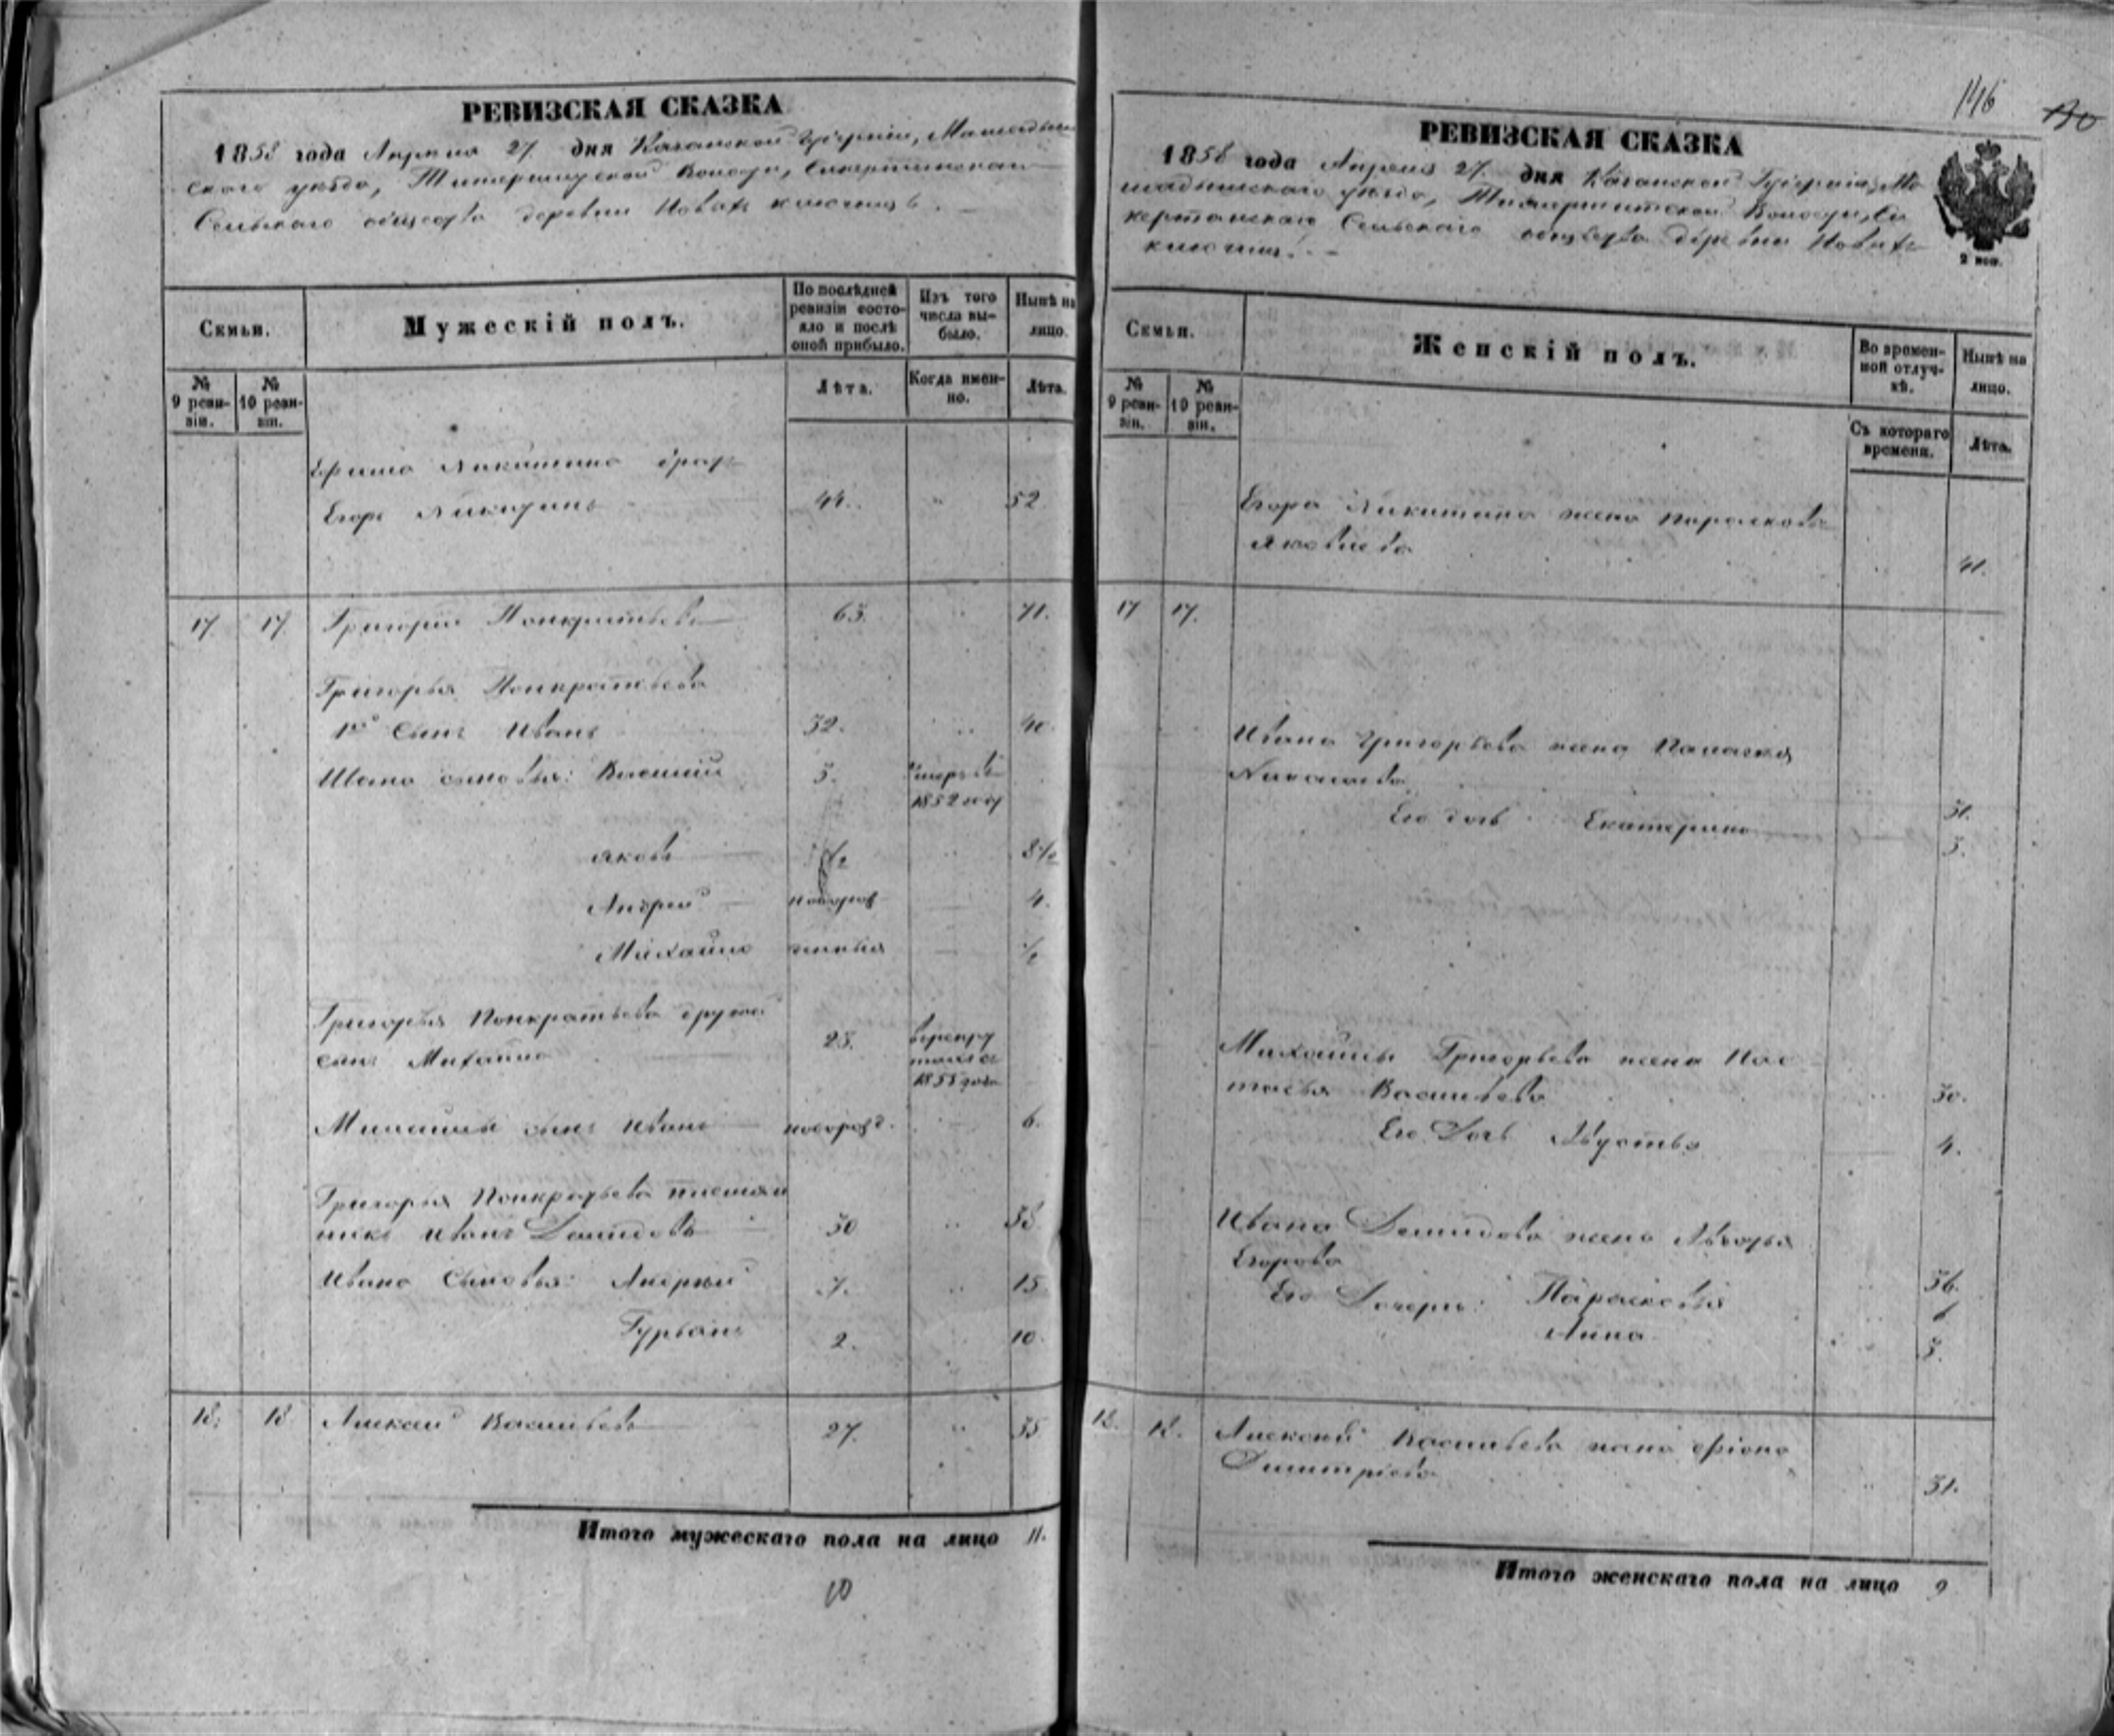 РЕВИЗСКАЯ СКАЗКА
1858 года Апреля 27 дня Казанской Губерніи, Мамадыш
скаго уѣзда, волости,
Сельскаго общества деревни Новыхъ ключищъ.
Семьи.
Мужескій полъ.
По послѣдней ревизіи состояло и послѣ оной прибыло.
Изъ того числа выбыло.
Нынѣ на лицо.
№ 9 ревизіи.
№ 10 ревизіи.
Лѣта.
Когда именно.
Лѣта.
Ефима Никитина брат
Егоръ Никитинъ 44. " 52
17 17 Григорій Понкратьевъ 63. 71.
Григорья Понкратьева
1й сынъ Иванъ 32. 40.
Ивана сыновья: Василий 5. умеръ въ
1852 году
Яковъ ½ 8½
Андрей новорож 4.
Михайло денныя ½
Григорья Понкратьева другой
сынъ Михайло 23. въ рекру
тахъ съ
185 года
Михайлы сынъ Иванъ новорожд. 6.
Григорья Понкратьева племян
никъ Иванъ Демидовъ 30 38
Ивана Сыновья: Андрей 7. 15
Гурьянъ 2. 10.
18. 18 Алексей Васильевъ 27. 35
Итого мужескаго пола на лицо 11.
146
РЕВИЗСКАЯ СКАЗКА
1858 года Апреля 27. дня Казанской Губерніи, Ма
мадышскаго уѣзда, Волости, Са
Сельскаго общества деревни Новыхъ
ключищъ.
2 коп.
Семьи.
Женскій полъ.
Во временной отлучкѣ.
Нынѣ на лицо.
№ 9 ревизіи.
№ 10 ревизіи.
Съ котораго времени.
Лѣта.
Егора Никитина жена Парасковья
Яковлева 41.
17 17.
Ивана Григорьева жена
Николаева 31.
Его дочь Екатерина 3.
Михайлы Григорьева жена Нас
тасья Васильева 30.
Его Дочь 4.
Ивана Демидова жена
Егорова 36.
Его Дочери: Парасковья 6
Анна 3.
18. 18. Алексея Васильева жена
Дмитріева 31.
Итого женскаго пола на лицо 9